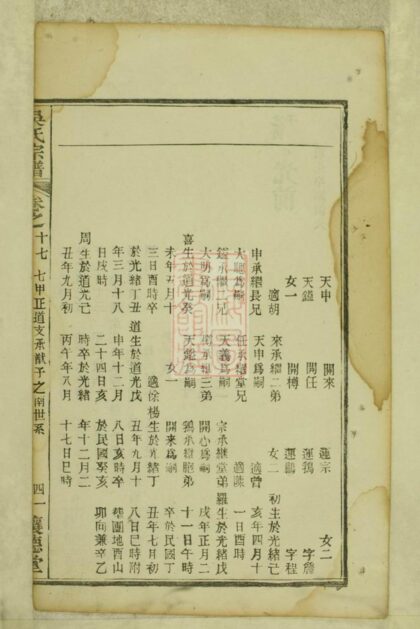 天申 開來 蓮宗 女二
天鎰 開任 蓮鵝 字詹
女一 開樽 蓮鵬 字程
適胡 來承繼二弟 女二 初生於光緒己
申承繼長兄 天申爲嗣 適曾 亥年四月十
爲嗣 任承繼堂兄 適陳 一日酉時
鎰承繼二兄 天義爲嗣 宗承繼堂弟 羅生於光緒戊
爲嗣 承繼三弟 開心爲嗣 戌年正月二
喜生於道光癸 天爲嗣 鵝承繼胞弟 十一日午時
未年五月十 女一 開來爲嗣 卒於民國丁
三日酉時卒 適徐楊 生於光緒丁 丑年七月初
於光緒丁丑 道生於道光戊 丑年九月十 八日巳時附
年三月十八 申年十二月 八日亥時卒 團地酉山
日戌時 二十四日亥 於民國癸亥 卯向兼辛乙
周生於道光己 時卒於光緒 年十二月二
丑年九月初 丙午年八月 十七日巳時
吳氏宗譜 卷之 十七 七甲正道支承猷子之南世系 四一 讓德堂